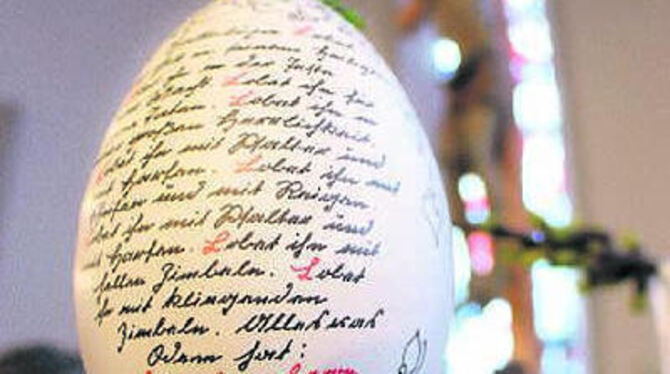 Lobet
in seinem Heilig-
in der Feste
Lobet ihn für
Taten. Lobet ihn in
großen Herrlichkeit.
Lobet ihn mit Psalter und
Harfen. Lobet ihn mit
Pauken und mit Reigen
Lobet ihn mit Psalter und
Harfen. Lobet ihn mit
hellen Zimbeln. Lobet
ihn mit klingenden
Zimbeln. Alles was
Odem hat: